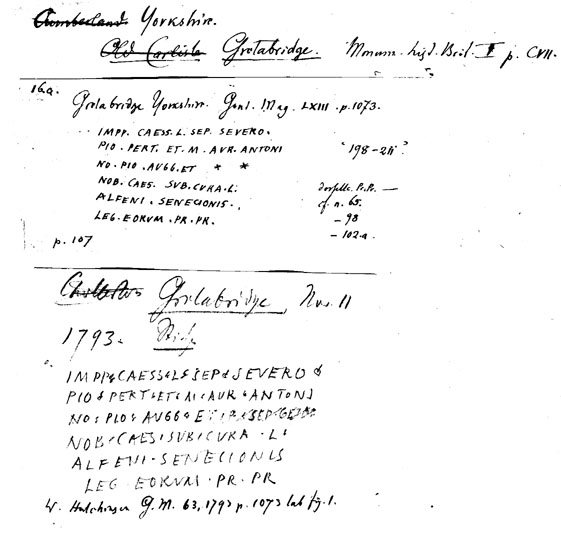 Cumberland Yorkshire.
Old Carlisle Gretabridge. Monum. hist. Brit. I p. CVII.
16a.
Gretabridge Yorkshire. Gent. Mag. LXIII. p. 1073.
IMPP. CAESS. L. SEP. SEVERO.
PIO. PERT. ET. M. AVR. ANTONI "198-211?
NO. PIO. AVGG. ET * *
NOB. CAES. SUB. CURA. L. derselbe P.P. —
ALFENI. SENECIONIS. cf. n. 65.
LEG. EORVM. PR. PR. – 98
– 102.a.
p. 107
Gretabridge, Nov. 11
1793.
IMPP CAESS L SEP SEVERO
PIO PERT ET M AUR ANTONI
NO PIO AVGG ET P SEP GE
NOB CAES SUB CURA L
ALFENI SENECIONIS
LEG EORVM PR PR
W. Hutchinson G.M. 63, 1793 p. 1073 tab fg. 1.